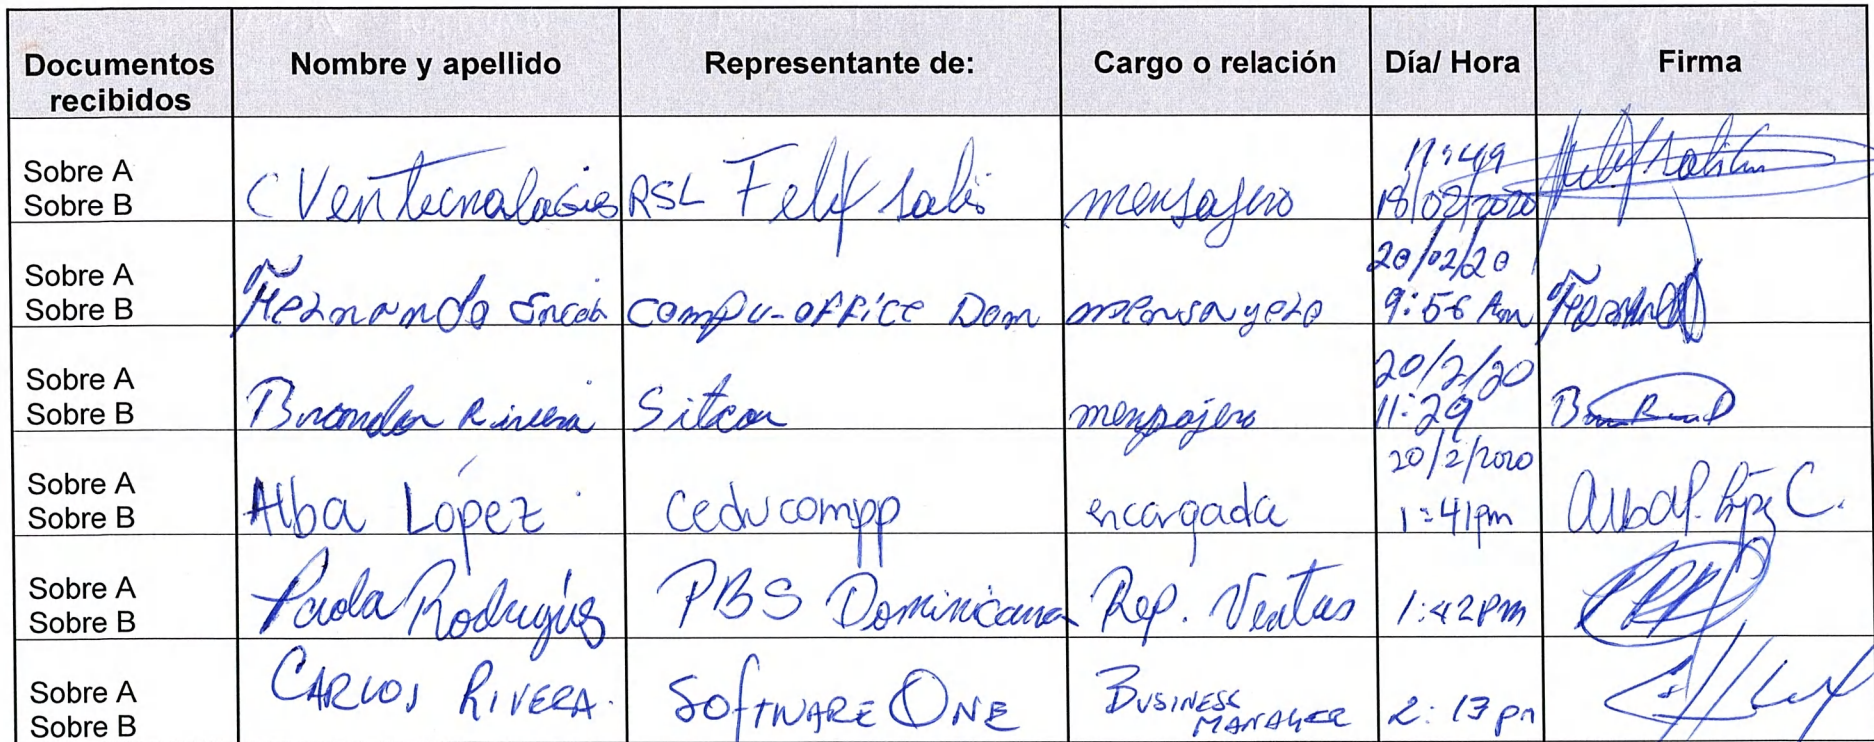 Documentos recibidos	Nombre y apellido	Representante de:	Cargo o relación	Día/ Hora	Firma
Sobre A
Sobre B	C Ventecnologias	RSL Felix Solis	mensajero	11:49
18/02/2020
Sobre A
Sobre B	Hernando	Compu-office Dom	mensayero	20/02/20
9:56 Am
Sobre A
Sobre B	Brandon Rivera	Sitcor	mensajero	20/2/20
11:29
Sobre A
Sobre B	Alba López	Ceducompp	encargada	20/2/2020
1:41pm
Sobre A
Sobre B	Paola Rodriguez	PBS Dominicana	Rep. Ventas	1:42pm
Sobre A
Sobre B	CARLOS RIVERA.	SOfTWARE ONE	BUSINESS
MANAGER	2:13 pm